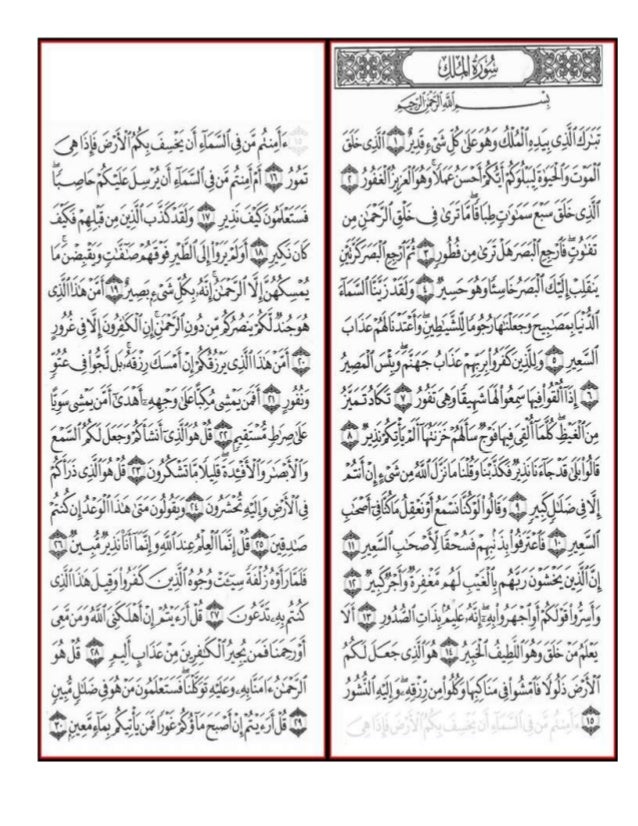 سُورَةُ المُلْكِ
بِسْمِ اللَّهِ الرَّحْمَٰنِ الرَّحِيمِ
تَبَٰرَكَ ٱلَّذِى بِيَدِهِ ٱلْمُلْكُ وَهُوَ عَلَىٰ كُلِّ شَىْءٍ قَدِيرٌ ١ ٱلَّذِى خَلَقَ
ٱلْمَوْتَ وَٱلْحَيَوٰةَ لِيَبْلُوَكُمْ أَيُّكُمْ أَحْسَنُ عَمَلًا وَهُوَ ٱلْعَزِيزُ ٱلْغَفُورُ ٢
ٱلَّذِى خَلَقَ سَبْعَ سَمَٰوَٰتٍ طِبَاقًا مَّا تَرَىٰ فِى خَلْقِ ٱلرَّحْمَٰنِ مِن
تَفَٰوُتٍ فَٱرْجِعِ ٱلْبَصَرَ هَلْ تَرَىٰ مِن فُطُورٍ ٣ ثُمَّ ٱرْجِعِ ٱلْبَصَرَ كَرَّتَيْنِ
يَنقَلِبْ إِلَيْكَ ٱلْبَصَرُ خَاسِئًا وَهُوَ حَسِيرٌ ٤ وَلَقَدْ زَيَّنَّا ٱلسَّمَآءَ
ٱلدُّنْيَا بِمَصَٰبِيحَ وَجَعَلْنَٰهَا رُجُومًا لِّلشَّيَٰطِينِ وَأَعْتَدْنَا لَهُمْ عَذَابَ
ٱلسَّعِيرِ ٥ وَلِلَّذِينَ كَفَرُوا۟ بِرَبِّهِمْ عَذَابُ جَهَنَّمَ وَبِئْسَ ٱلْمَصِيرُ
٦ إِذَآ أُلْقُوا۟ فِيهَا سَمِعُوا۟ لَهَا شَهِيقًا وَهِىَ تَفُورُ ٧ تَكَادُ تَمَيَّزُ
مِنَ ٱلْغَيْظِ كُلَّمَآ أُلْقِىَ فِيهَا فَوْجٌ سَأَلَهُمْ خَزَنَتُهَآ أَلَمْ يَأْتِكُمْ نَذِيرٌ ٨
قَالُوا۟ بَلَىٰ قَدْ جَآءَنَا نَذِيرٌ فَكَذَّبْنَا وَقُلْنَا مَا نَزَّلَ ٱللَّهُ مِن شَىْءٍ إِنْ أَنتُمْ
إِلَّا فِى ضَلَٰلٍ كَبِيرٍ ٩ وَقَالُوا۟ لَوْ كُنَّا نَسْمَعُ أَوْ نَعْقِلُ مَا كُنَّا فِىٓ أَصْحَٰبِ
ٱلسَّعِيرِ ١٠ فَٱعْتَرَفُوا۟ بِذَنۢبِهِمْ فَسُحْقًا لِّأَصْحَٰبِ ٱلسَّعِيرِ ١١
إِنَّ ٱلَّذِينَ يَخْشَوْنَ رَبَّهُم بِٱلْغَيْبِ لَهُم مَّغْفِرَةٌ وَأَجْرٌ كَبِيرٌ ١٢
وَأَسِرُّوا۟ قَوْلَكُمْ أَوِ ٱجْهَرُوا۟ بِهِۦٓ إِنَّهُۥ عَلِيمٌۢ بِذَاتِ ٱلصُّدُورِ ١٣ أَلَا
يَعْلَمُ مَنْ خَلَقَ وَهُوَ ٱللَّطِيفُ ٱلْخَبِيرُ ١٤ هُوَ ٱلَّذِى جَعَلَ لَكُمُ
ٱلْأَرْضَ ذَلُولًا فَٱمْشُوا۟ فِى مَنَاكِبِهَا وَكُلُوا۟ مِن رِّزْقِهِۦ وَإِلَيْهِ ٱلنُّشُورُ
١٥ ءَأَمِنتُم مَّن فِى ٱلسَّمَآءِ أَن يَخْسِفَ بِكُمُ ٱلْأَرْضَ فَإِذَا هِىَ
١٥ ءَأَمِنتُم مَّن فِى ٱلسَّمَآءِ أَن يَخْسِفَ بِكُمُ ٱلْأَرْضَ فَإِذَا هِىَ
تَمُورُ ١٦ أَمْ أَمِنتُم مَّن فِى ٱلسَّمَآءِ أَن يُرْسِلَ عَلَيْكُمْ حَاصِبًا
فَسَتَعْلَمُونَ كَيْفَ نَذِيرِ ١٧ وَلَقَدْ كَذَّبَ ٱلَّذِينَ مِن قَبْلِهِمْ فَكَيْفَ
كَانَ نَكِيرِ ١٨ أَوَلَمْ يَرَوْا۟ إِلَى ٱلطَّيْرِ فَوْقَهُمْ صَٰٓفَّٰتٍ وَيَقْبِضْنَ مَا
يُمْسِكُهُنَّ إِلَّا ٱلرَّحْمَٰنُ إِنَّهُۥ بِكُلِّ شَىْءٍۭ بَصِيرٌ ١٩ أَمَّنْ هَٰذَا ٱلَّذِى
هُوَ جُندٌ لَّكُمْ يَنصُرُكُم مِّن دُونِ ٱلرَّحْمَٰنِ إِنِ ٱلْكَٰفِرُونَ إِلَّا فِى غُرُورٍ
٢٠ أَمَّنْ هَٰذَا ٱلَّذِى يَرْزُقُكُمْ إِنْ أَمْسَكَ رِزْقَهُۥ بَل لَّجُّوا۟ فِى عُتُوٍّ
وَنُفُورٍ ٢١ أَفَمَن يَمْشِى مُكِبًّا عَلَىٰ وَجْهِهِۦٓ أَهْدَىٰٓ أَمَّن يَمْشِى سَوِيًّا
عَلَىٰ صِرَٰطٍ مُّسْتَقِيمٍ ٢٢ قُلْ هُوَ ٱلَّذِىٓ أَنشَأَكُمْ وَجَعَلَ لَكُمُ ٱلسَّمْعَ
وَٱلْأَبْصَٰرَ وَٱلْأَفْـِٔدَةَ قَلِيلًا مَّا تَشْكُرُونَ ٢٣ قُلْ هُوَ ٱلَّذِى ذَرَأَكُمْ
فِى ٱلْأَرْضِ وَإِلَيْهِ تُحْشَرُونَ ٢٤ وَيَقُولُونَ مَتَىٰ هَٰذَا ٱلْوَعْدُ إِن كُنتُمْ
صَٰدِقِينَ ٢٥ قُلْ إِنَّمَا ٱلْعِلْمُ عِندَ ٱللَّهِ وَإِنَّمَآ أَنَا۠ نَذِيرٌ مُّبِينٌ ٢٦
فَلَمَّا رَأَوْهُ زُلْفَةً سِيٓـَٔتْ وُجُوهُ ٱلَّذِينَ كَفَرُوا۟ وَقِيلَ هَٰذَا ٱلَّذِى
كُنتُم بِهِۦ تَدَّعُونَ ٢٧ قُلْ أَرَءَيْتُمْ إِنْ أَهْلَكَنِىَ ٱللَّهُ وَمَن مَّعِىَ
أَوْ رَحِمَنَا فَمَن يُجِيرُ ٱلْكَٰفِرِينَ مِنْ عَذَابٍ أَلِيمٍ ٢٨ قُلْ هُوَ
ٱلرَّحْمَٰنُ ءَامَنَّا بِهِۦ وَعَلَيْهِ تَوَكَّلْنَا فَسَتَعْلَمُونَ مَنْ هُوَ فِى ضَلَٰلٍ مُّبِينٍ
٢٩ قُلْ أَرَءَيْتُمْ إِنْ أَصْبَحَ مَآؤُكُمْ غَوْرًا فَمَن يَأْتِيكُم بِمَآءٍ مَّعِينٍۭ ٣٠